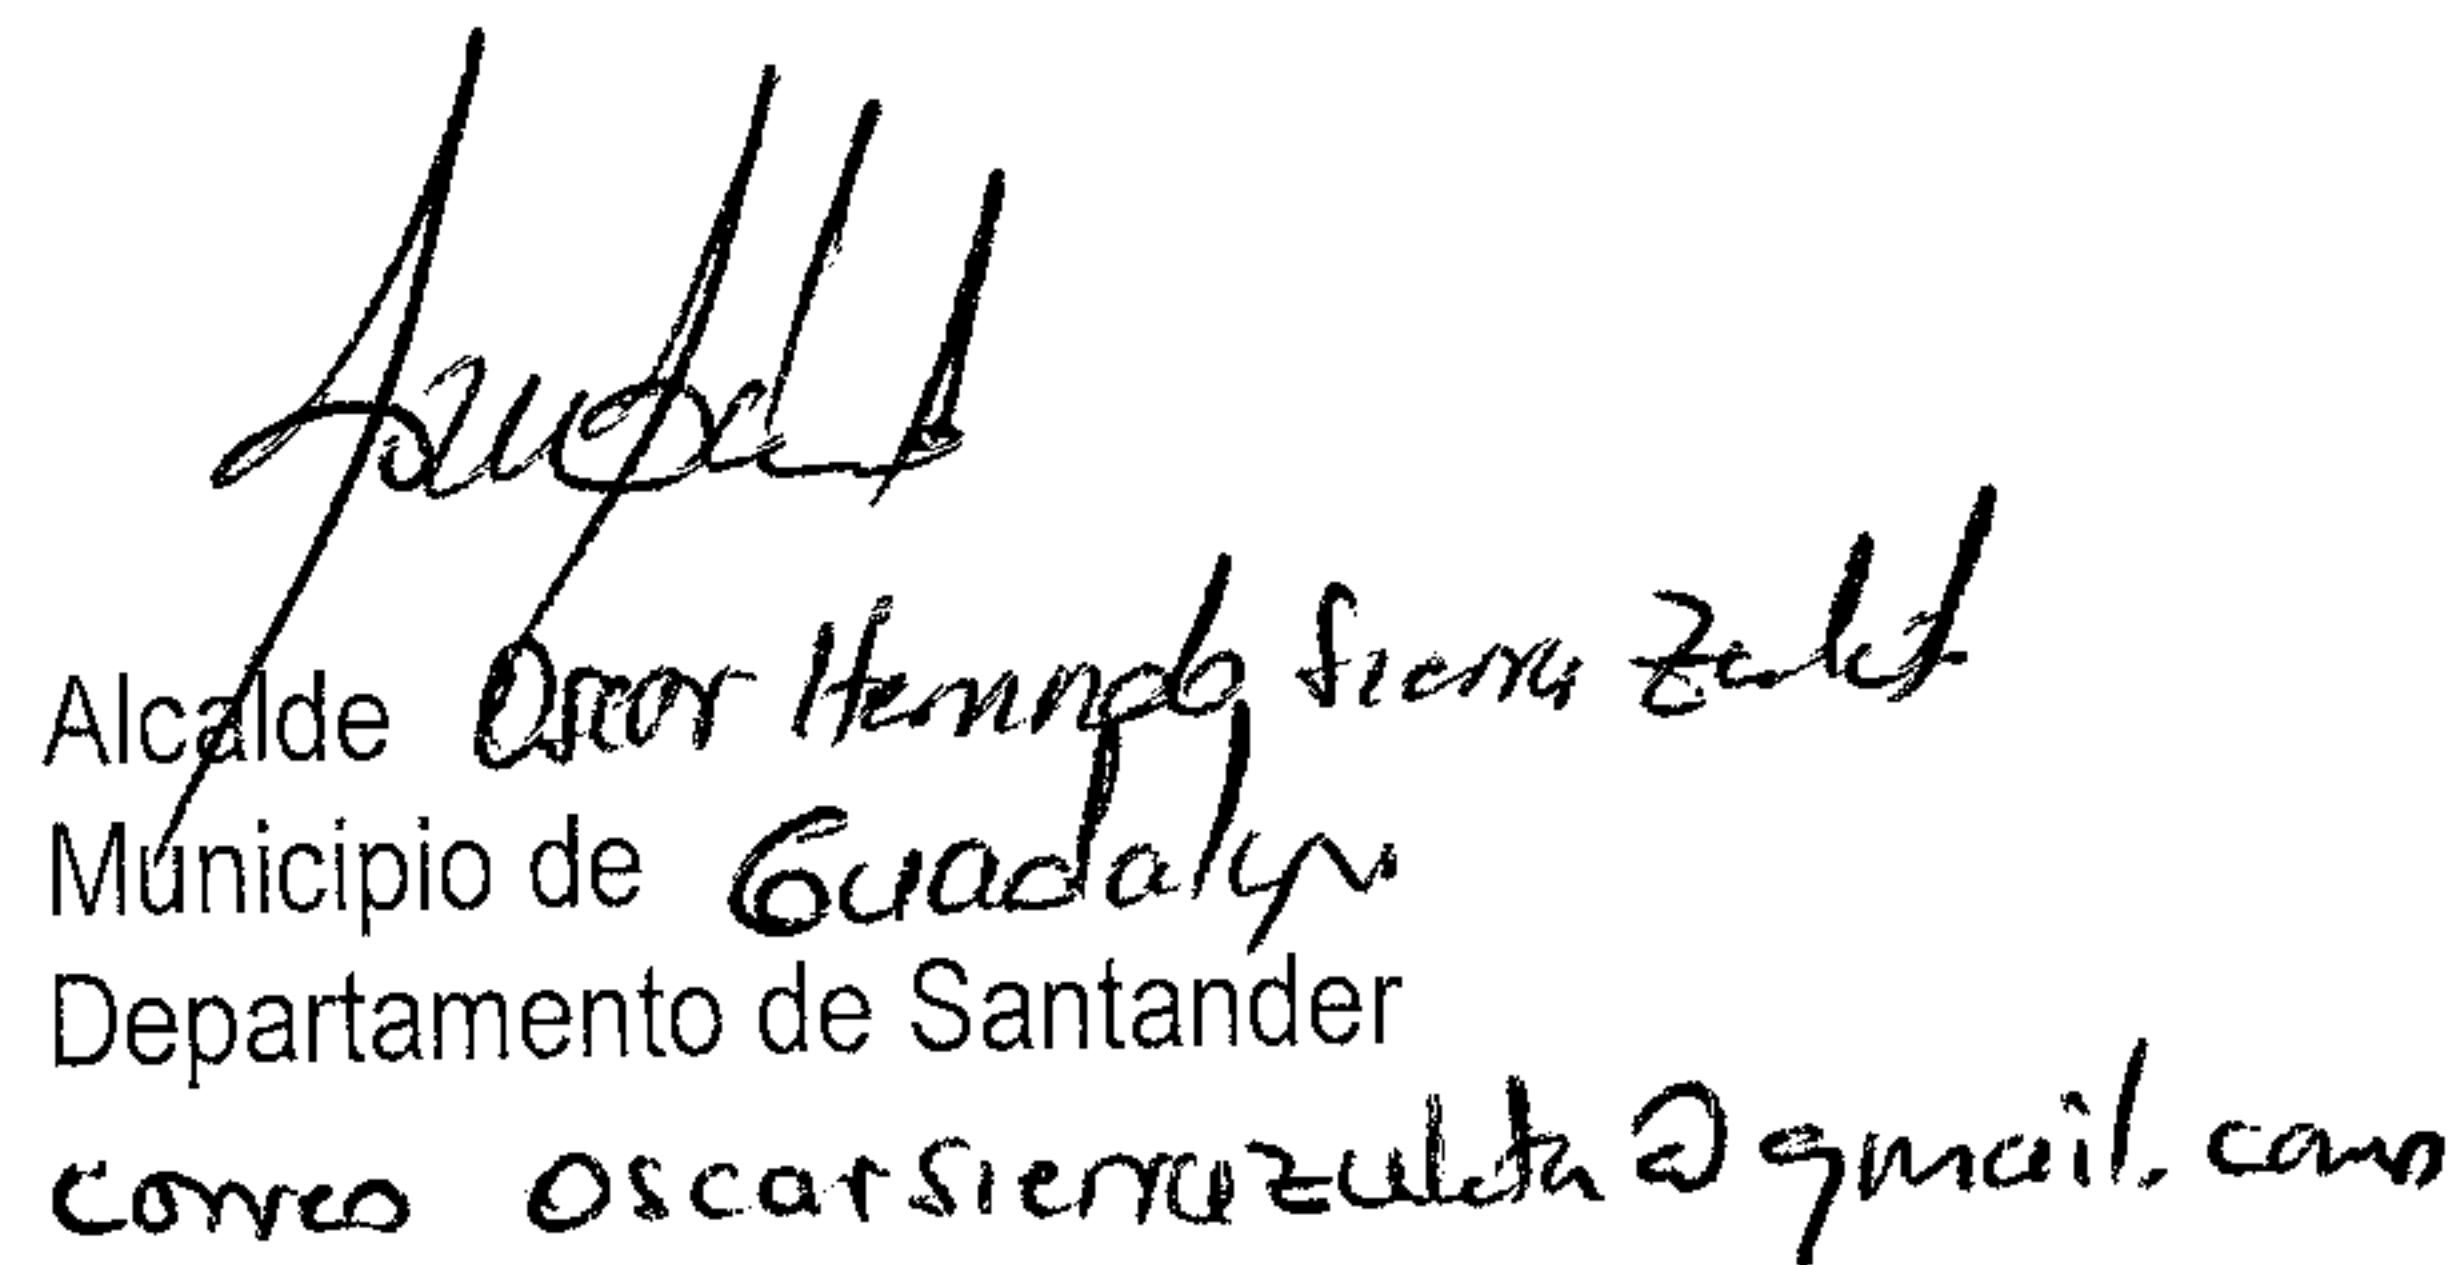 Alcalde Oscar Hernando Sierra Zuleta
Municipio de Guadalupe
Departamento de Santander
Correo oscarsierrazuleta@gmail.com